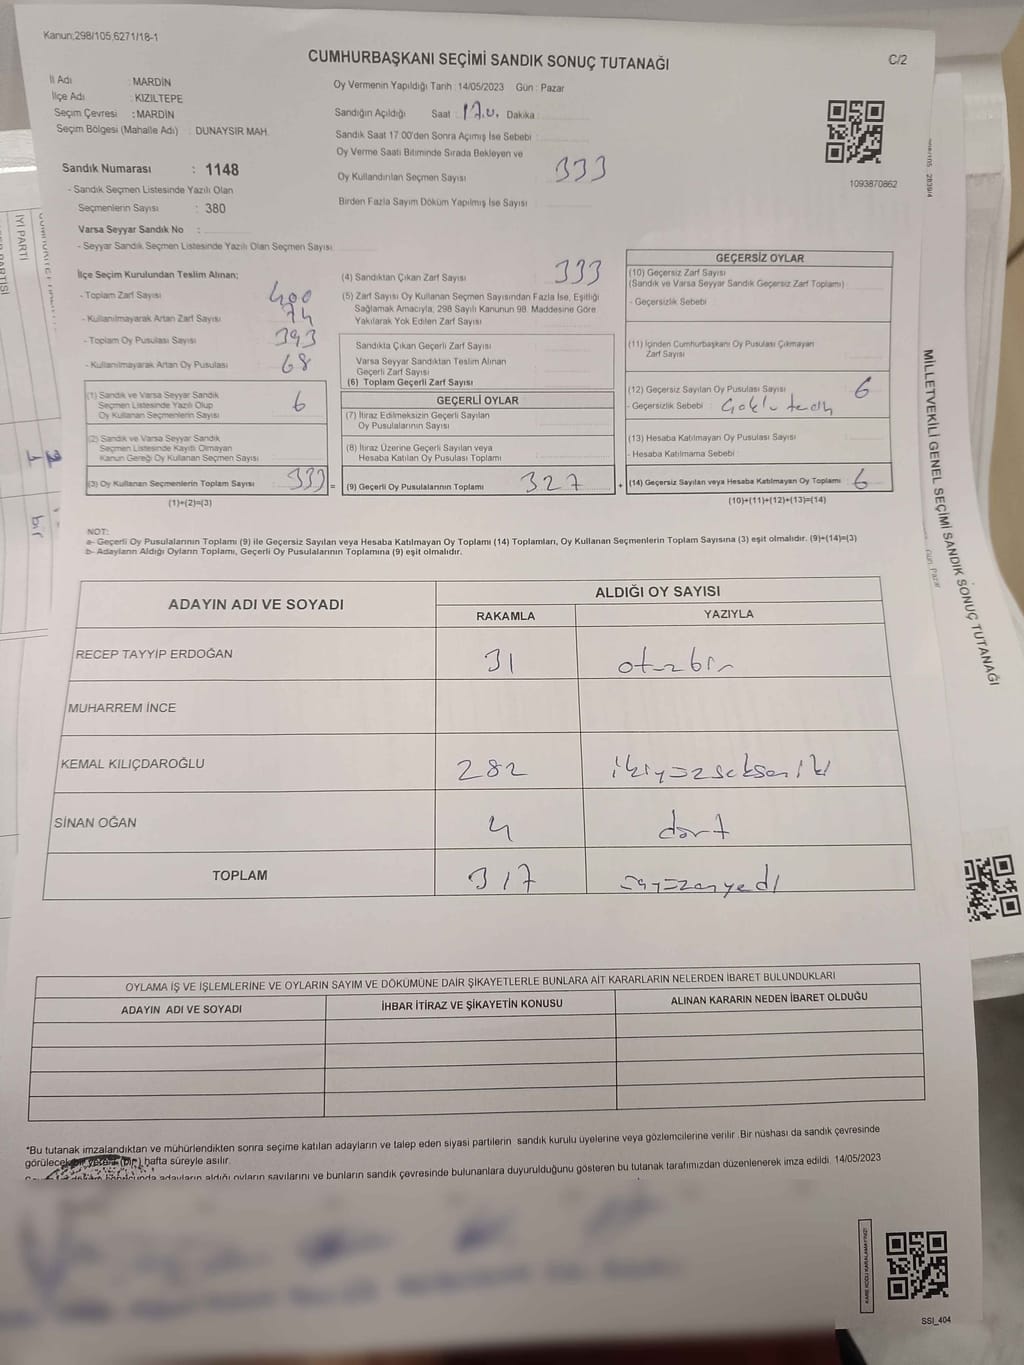 Kanun;298/105,6271/18-1
CUMHURBAŞKANI SEÇİMİ SANDIK SONUÇ TUTANAĞI
C/2
İl Adı : MARDİN
İlçe Adı : KIZILTEPE
Seçim Çevresi : MARDİN
Seçim Bölgesi (Mahalle Adı) : DUNAYSIR MAH.
Oy Vermenin Yapıldığı Tarih : 14/05/2023 Gün : Pazar
Sandığın Açıldığı Saat : 17.0. Dakika :
Sandık Saat 17:00'den Sonra Açımış İse Sebebi :
Oy Verme Saati Bitiminde Sırada Bekleyen ve
Oy Kullandırılan Seçmen Sayısı 333
Birden Fazla Sayım Döküm Yapılmış İse Sayısı
1093870862
Sandık Numarası : 1148
- Sandık Seçmen Listesinde Yazılı Olan
Seçmenlerin Sayısı : 380
Varsa Seyyar Sandık No :
- Seyyar Sandık Seçmen Listesinde Yazılı Olan Seçmen Sayısı:
İlçe Seçim Kurulundan Teslim Alınan;
- Toplam Zarf Sayısı 400
- Kullanılmayarak Artan Zarf Sayısı 74
- Toplam Oy Pusulası Sayısı 393
- Kullanılmayarak Artan Oy Pusulası 68
(1) Sandık ve Varsa Seyyar Sandık
Seçmen Listesinde Yazılı Olup
Oy Kullanan Seçmenlerin Sayısı 6
(2) Sandık ve Varsa Seyyar Sandık
Seçmen Listesinde Kayıtlı Olmayan
Kanun Gereği Oy Kullanan Seçmen Sayısı
(3) Oy Kullanan Seçmenlerin Toplam Sayısı 333
(1)+(2)=(3)
(4) Sandıktan Çıkan Zarf Sayısı 333
(5) Zarf Sayısı Oy Kullanan Seçmen Sayısından Fazla İse, Eşitliği
Sağlamak Amacıyla; 298 Sayılı Kanunun 98. Maddesine Göre
Yakılarak Yok Edilen Zarf Sayısı
Sandıkta Çıkan Geçerli Zarf Sayısı
Varsa Seyyar Sandıktan Teslim Alınan
Geçerli Zarf Sayısı
(6) Toplam Geçerli Zarf Sayısı
GEÇERLİ OYLAR
(7) İtiraz Edilmeksizin Geçerli Sayılan
Oy Pusulalarının Sayısı
(8) İtiraz Üzerine Geçerli Sayılan veya
Hesaba Katılan Oy Pusulası Toplamı
(9) Geçerli Oy Pusulalarının Toplamı 327
GEÇERSİZ OYLAR
(10) Geçersiz Zarf Sayısı
(Sandık ve Varsa Sandık Geçersiz Zarf Toplamı)
- Geçersizlik Sebebi
(11) İçinden Cumhurbaşkanı Oy Pusulası Çıkmayan
Zarf Sayısı
(12) Geçersiz Sayılan Oy Pusulası Sayısı 6
- Geçersizlik Sebebi :
(13) Hesaba Katılmayan Oy Pusulası Sayısı
- Hesaba Katılmama Sebebi
(14) Geçersiz Sayılan veya Hesaba Katılmayan Oy Toplamı 6
(10)+(11)+(12)+(13)=(14)
NOT:
a- Geçerli Oy Pusulalarının Toplamı (9) ile Geçersiz Sayılan veya Hesaba Katılmayan Oy Toplamı (14) Toplamları, Oy Kullanan Seçmenlerin Toplam Sayısına (3) eşit olmalıdır. (9)+(14)=(3)
b- Adayların Aldığı Oyların Toplamı, Geçerli Oy Pusulalarının Toplamına (9) eşit olmalıdır.
ADAYIN ADI VE SOYADI
ALDIĞI OY SAYISI
RAKAMLA YAZIYLA
RECEP TAYYİP ERDOĞAN 31 otuzbir
MUHARREM İNCE
KEMAL KILIÇDAROĞLU 282 ikiyüzsekseniki
SİNAN OĞAN 4 dört
TOPLAM 317 üçyüzonyedi
OYLAMA İŞ VE İŞLEMLERİNE VE OYLARIN SAYIM VE DÖKÜMÜNE DAİR ŞİKAYETLERLE BUNLARA AİT KARARLARIN NELERDEN İBARET BULUNDUKLARI
ADAYIN ADI VE SOYADI İHBAR İTİRAZ VE ŞİKAYETİN KONUSU ALINAN KARARIN NEDEN İBARET OLDUĞU
*Bu tutanak imzalandıktan ve mühürlendikten sonra seçime katılan adayların ve talep eden siyasi partilerin sandık kurulu üyelerine veya gözlemcilerine verilir. Bir nüshası da sandık çevresinde
görülecek bir yere (bir) hafta süreyle asılır.
adayların aldığı oyların sayılarını ve bunların sandık çevresinde bulunanlara duyurulduğunu gösteren bu tutanak tarafımızdan düzenlenerek imza edildi. 14/05/2023
KARE KODU KARALAMAYINIZ!
SSI_404
MİLLETVEKİLİ GENEL SEÇİMİ SANDIK SONUÇ TUTANAĞI
Gün: Pazar
İYİ PARTİ
bir